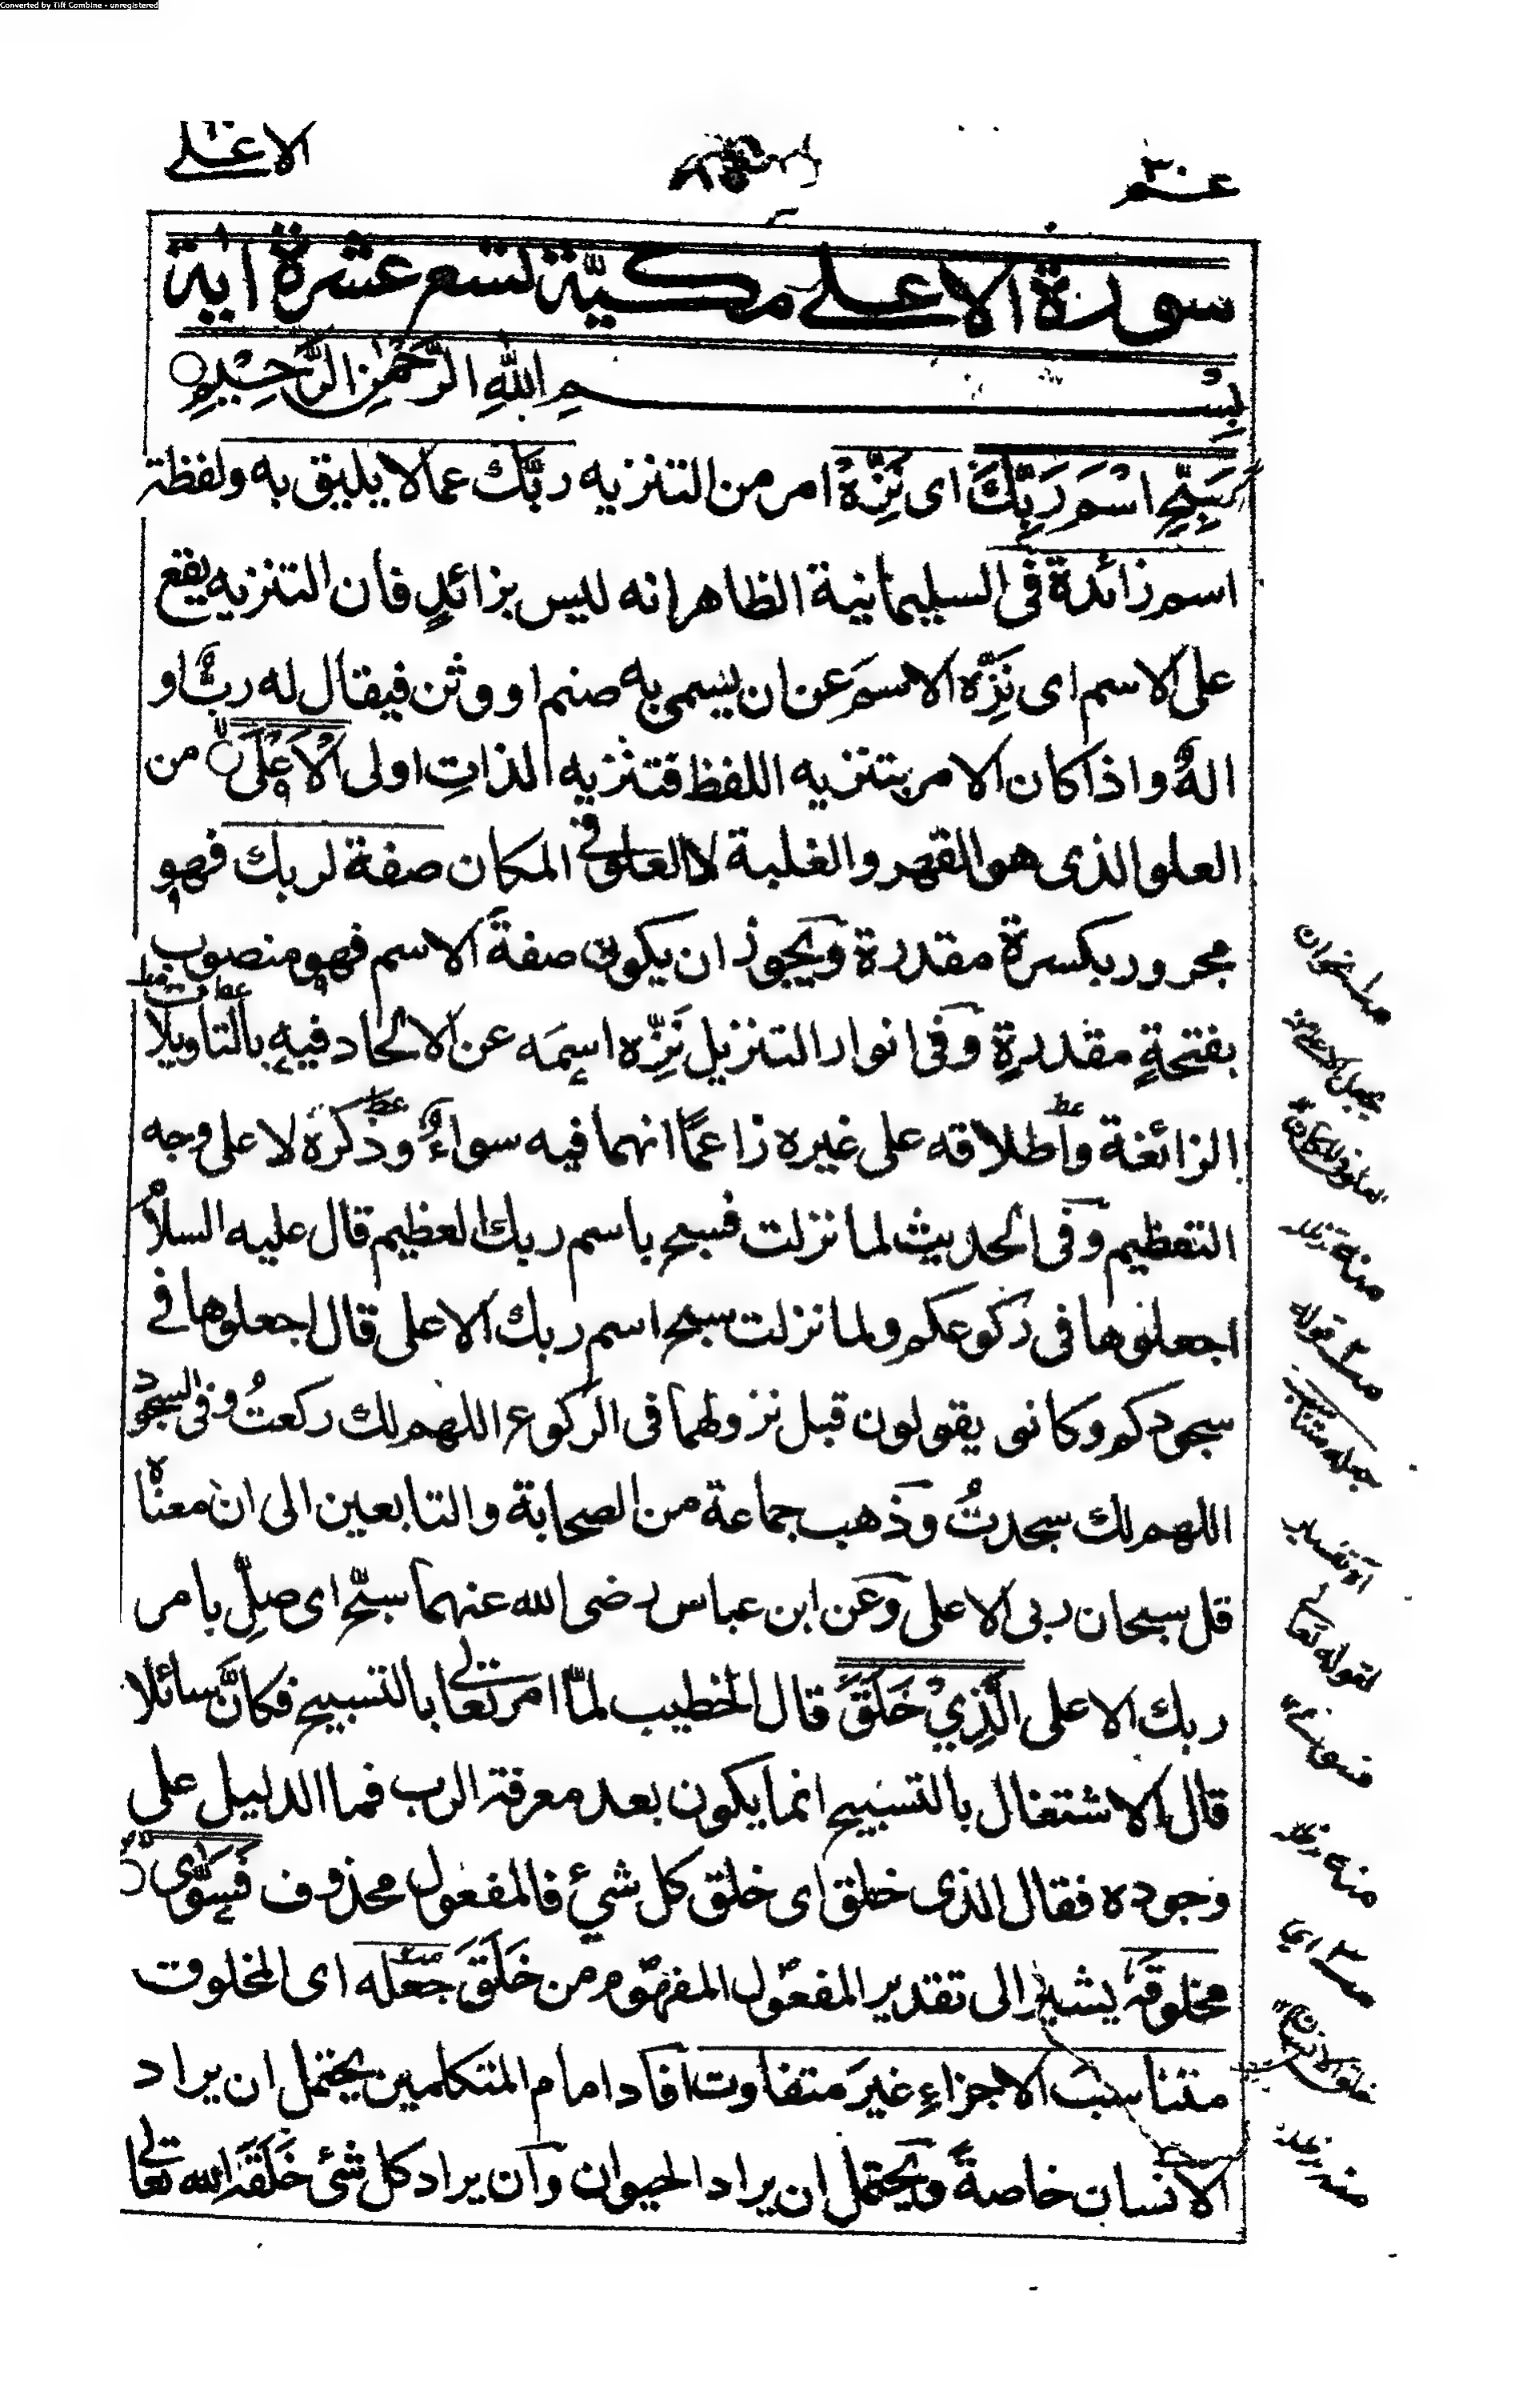 Converted by Tiff Combine - unregistered
عم ٣٠
الاعلى
سورة الاعلى مكية تسع عشرة اية
بِسْمِ اللهِ الرَّحْمٰنِ الرَّحِيْمِ
سَبِّحِ اسْمَ رَبِّكَ اى نَزِّهْ امر من التنزيه ربَّك عما لا يليق به ولفظة
اسم زائدة فى السليمانية الظاهر انه ليس بزائدٍ فان التنزيه يقع
على الاسم اى نَزِّه الاسمَ عن ان يسمى به صنم او وثن فيقال له ربٌّ او
الهٌ واذا كان الامر بتنزيه اللفظ فتنزيه الذاتِ اولى الْاَعْلَى من
العلو الذى هو القهر والغلبة لا العلو فى المكان صفة لربك فهو
مجرور بكسرة مقدرة ويجوز ان يكون صفةَ الاسم فهو منصوب
بفتحةٍ مقدرةٍ وفى انوار التنزيل نَزِّه اسمَه عن الالحاد فيه بالتاويلا
الزائغة واطلاقه على غيره زاعمًا انهما فيه سواءٌ وذكره لا على وجه
التعظيم وفى الحديث لما نزلت فسبح باسم ربك العظيم قال عليه السلام
اجعلوها فى ركوعكم ولما نزلت سبح اسم ربك الاعلى قال اجعلوها فى
سجودكم وكانو يقولون قبل نزولهما فى الركوع اللهم لك ركعتُ وفى السجود
اللهم لك سجدتُ وذهب جماعة من الصحابة والتابعين الى ان معناه
قل سبحان ربى الاعلى وعن ابن عباس رضى الله عنهما سبّح اى صلِّ بامر
ربك الاعلى الَّذِيْ خَلَقَ قال الخطيب لمّا امر تعالى بالتسبيح فكانَّ سائلا
قال الاشتغال بالتسبيح انما يكون بعد معرفة الرب فما الدليل على
وجوده فقال الذى خلق اى خلق كل شيْء فالمفعول محذوف فَسَوّٰى
مخلوقَه يشير الى تقدير المفعول المفهوم من خَلَقَ جعله اى المخلوق
متناسبَ الاجزاءِ غيرَ متفاوت افاد امام المتكلمين يحتمل ان يراد
الانسان خاصةً ويحتمل ان يراد الحيوان وان يراد كل شئ خَلَقَه الله تعالى
منه
قوله
لقوله تعالى
منه